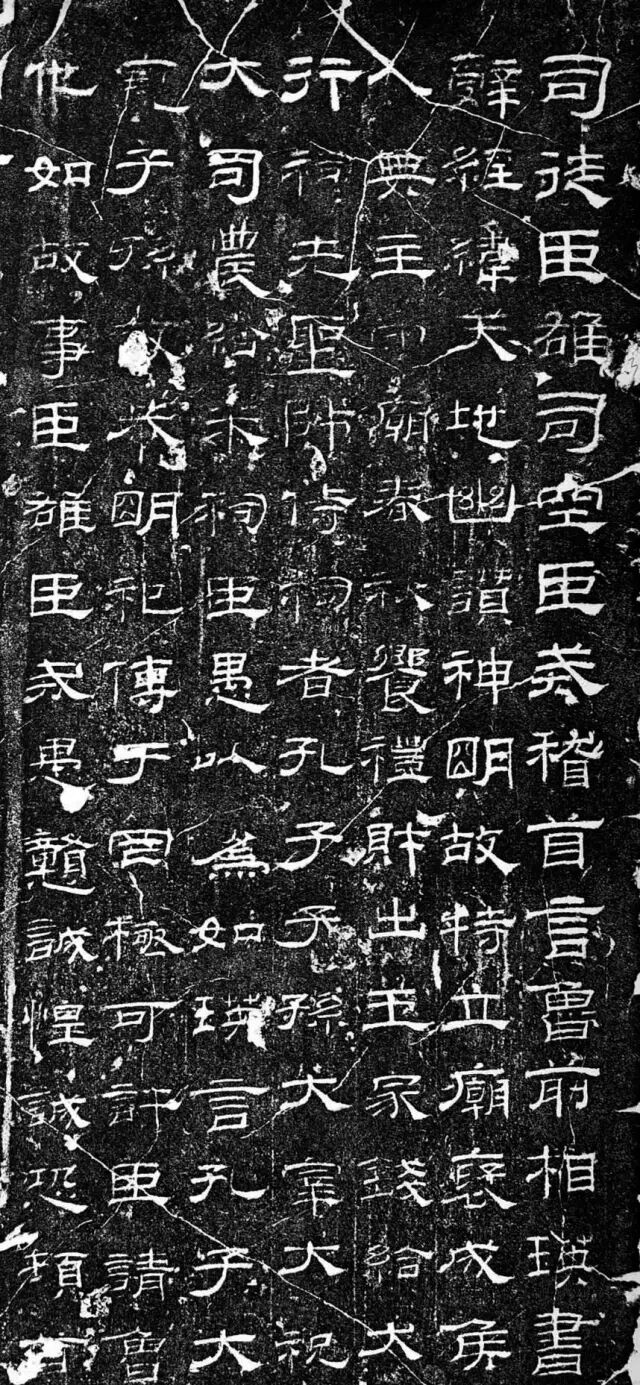 司徒臣雄司空臣戒稽首言魯前相瑛書
辭經緯天地幽讚神明故特立廟褒成侯
人典主守廟春秋饗禮財出王家錢給大
行祠先聖師侍祠者孔子子孫大宰大祝
大司農給米祠臣愚以爲如瑛言孔子大
寬子孫敬恭明祀傳于罔極可許臣請魯
他如故事臣雄臣戒愚戇誠惶誠恐頓首